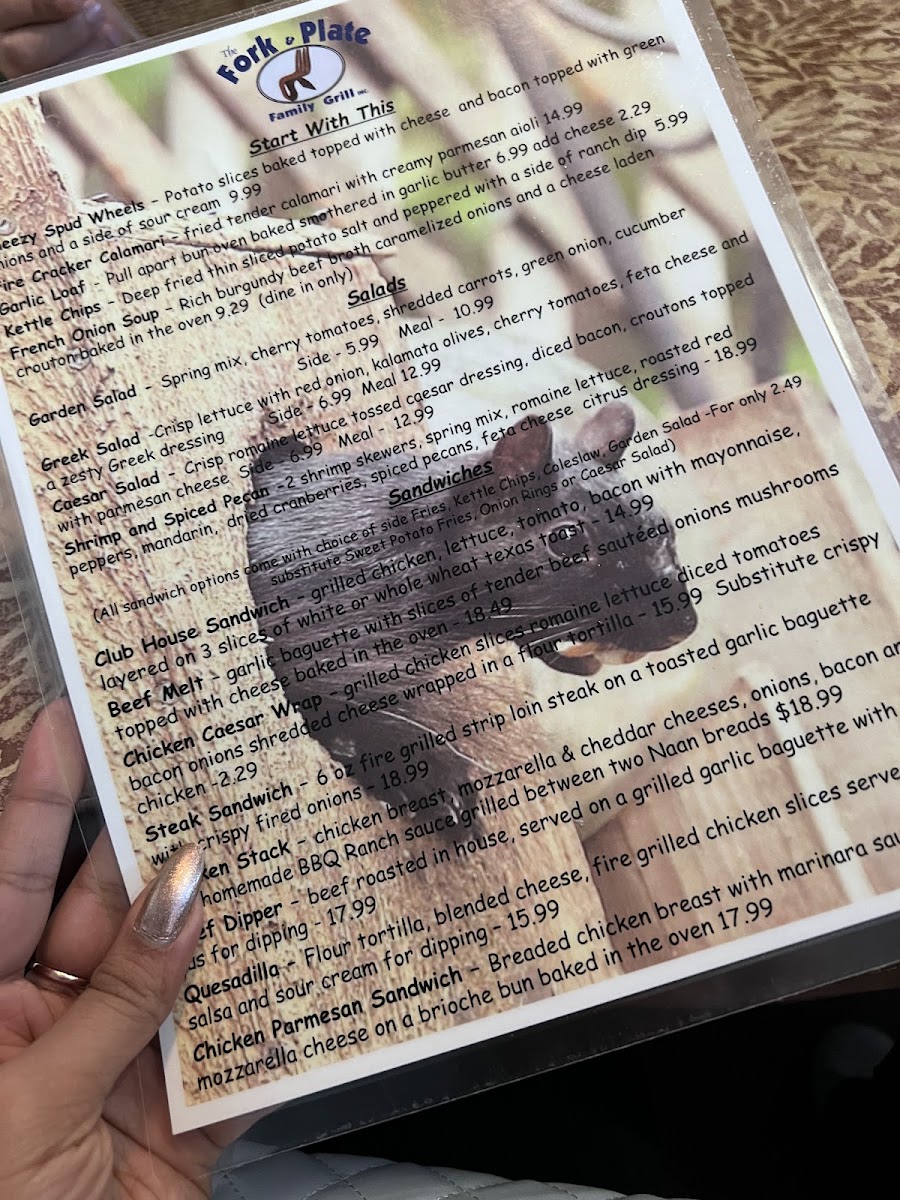 The
Fork & Plate
Family Grill INC.
Start With This
eezy Spud Wheels - Potato slices baked topped with cheese and bacon topped with green
nions and a side of sour cream 9.99
Fire Cracker Calamari - fried tender calamari with creamy parmesan aioli 14.99
Garlic Loaf - Pull apart bun oven baked smothered in garlic butter 6.99 add cheese 2.29
Kettle Chips - Deep fried thin sliced potato salt and peppered with a side of ranch dip 5.99
French Onion Soup - Rich burgundy beef broth caramelized onions and a cheese laden
crouton baked in the oven 9.29 (dine in only)
Salads
Garden Salad - Spring mix, cherry tomatoes, shredded carrots, green onion, cucumber
Side - 5.99 Meal - 10.99
Greek Salad -Crisp lettuce with red onion, kalamata olives, cherry tomatoes, feta cheese and
a zesty Greek dressing Side - 6.99 Meal 12.99
Caesar Salad - Crisp romaine lettuce tossed caesar dressing, diced bacon, croutons topped
with parmesan cheese Side - 6.99 Meal - 12.99
Shrimp and Spiced Pecan -2 shrimp skewers, spring mix, romaine lettuce, roasted red
peppers, mandarin, dried cranberries, spiced pecans, feta cheese citrus dressing - 18.99
Sandwiches
(All sandwich options come with choice of side Fries, Kettle Chips, Coleslaw, Garden Salad -For only 2.49
substitute Sweet Potato Fries, Onion Rings or Caesar Salad)
Club House Sandwich - grilled chicken, lettuce, tomato, bacon with mayonnaise,
layered on 3 slices of white or whole wheat texas toast - 14.99
Beef Melt - garlic baguette with slices of tender beef sautéed onions mushrooms
topped with cheese baked in the oven - 18.49
Chicken Caesar Wrap - grilled chicken slices romaine lettuce diced tomatoes
bacon onions shredded cheese wrapped in a flour tortilla - 15.99 Substitute crispy
chicken -2.29
Steak Sandwich - 6 oz fire grilled strip loin steak on a toasted garlic baguette
with crispy fired onions - 18.99
ken Stack - chicken breast, mozzarella & cheddar cheeses, onions, bacon an
homemade BBQ Ranch sauce grilled between two Naan breads $18.99
ef Dipper - beef roasted in house, served on a grilled garlic baguette with
us for dipping - 17.99
Quesadilla - Flour tortilla, blended cheese, fire grilled chicken slices serve
salsa and sour cream for dipping - 15.99
Chicken Parmesan Sandwich - Breaded chicken breast with marinara sau
mozzarella cheese on a brioche bun baked in the oven 17.99